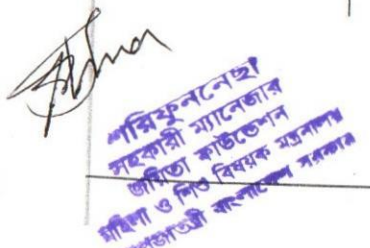 শরিফুননেছা
সহকারী ম্যানেজার
জয়িতা ফাউন্ডেশন
মহিলা ও শিশু বিষয়ক মন্ত্রনালয়
গণপ্রজাতন্ত্রী বাংলাদেশ সরকার